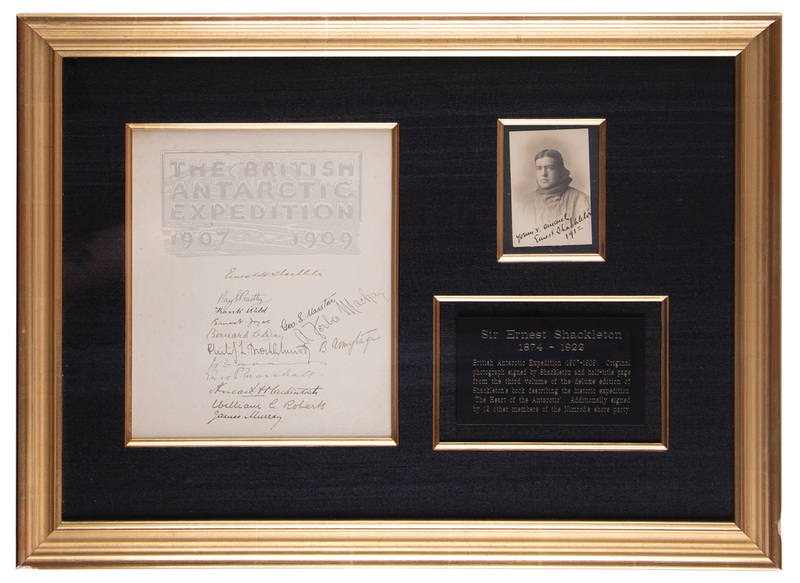 THE BRITISH
ANTARCTIC
EXPEDITION
1907 1909
Ernest H Shackleton
Raymond E Priestley
Frank Wild
Ernest Joyce
Geo. S. Marston
A Forbes Mackay
Bernard C. Day
Philip L. Brocklehurst
B. Armytage
Eric S Marshall
Aeneas A Mackintosh
William C Roberts
James Murray
Ernest Shackleton
1912
Sir Ernest Shackleton
1874 - 1922
British Antarctic Expedition 1907-1909. Original
photograph signed by Shackleton and half-title page
from the third volume of the deluxe edition of
Shackleton's book describing the historic expedition
'The Heart of the Antarctic'. Additionally signed
by 12 other members of the Nimrod's shore party.